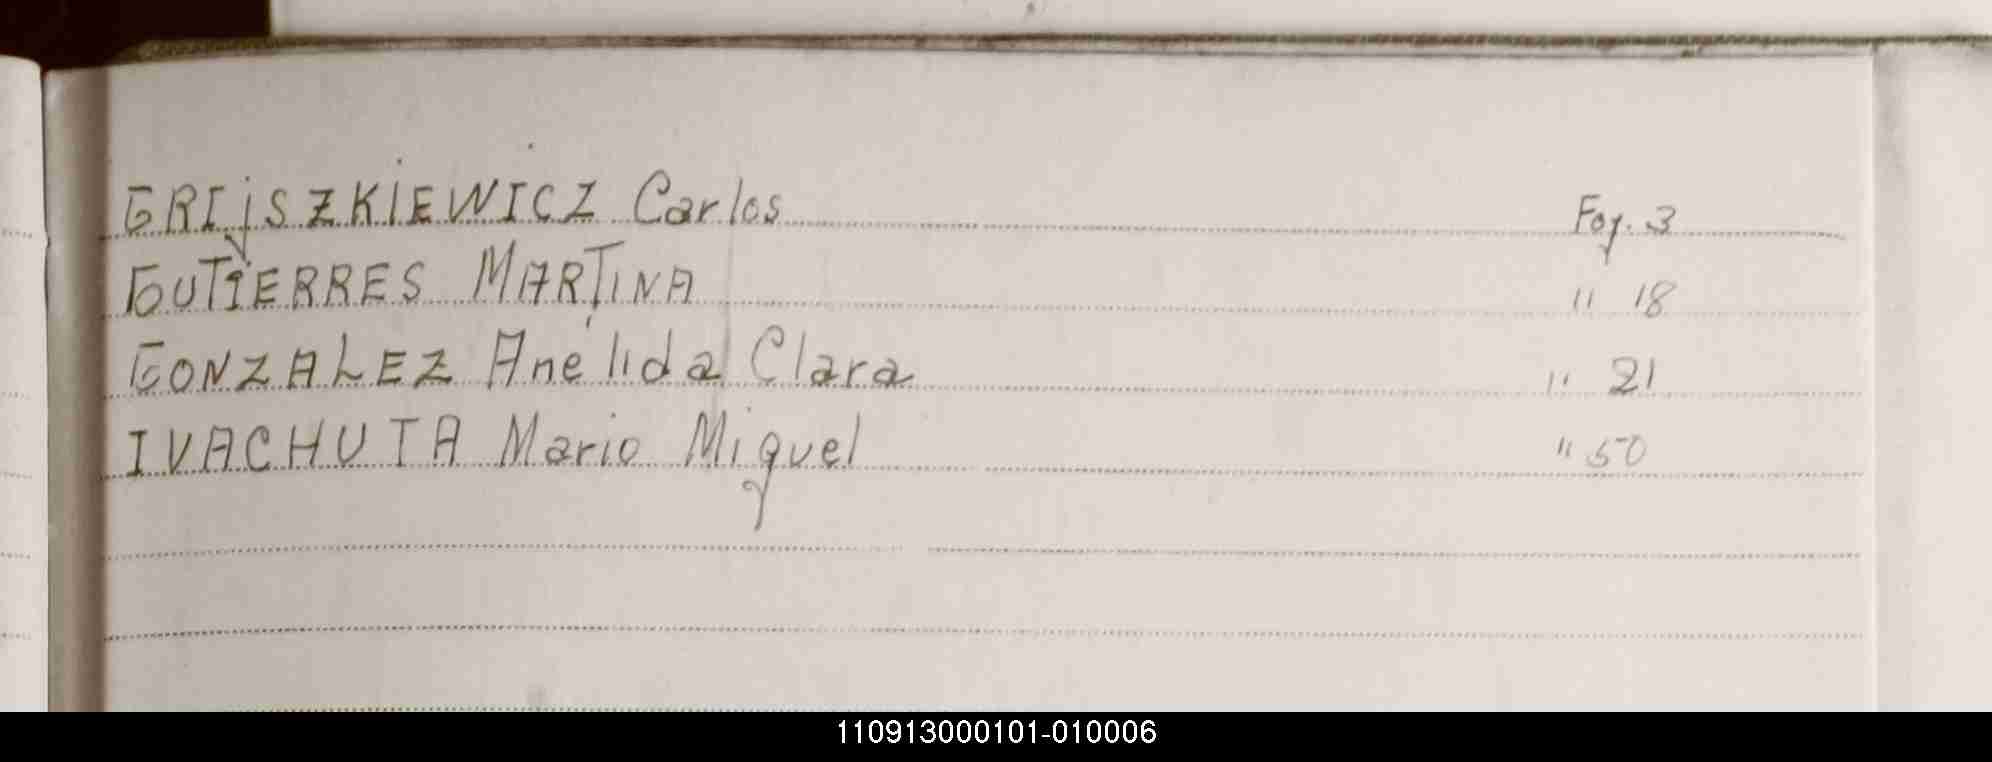 GRIjSZKIEWICZ Carlos Foj. 3
GUTiERRES MARTINA " 18
GONZALEZ Anélida Clara " 21
IVACHUTA Mario Miguel " 50
110913000101-010006